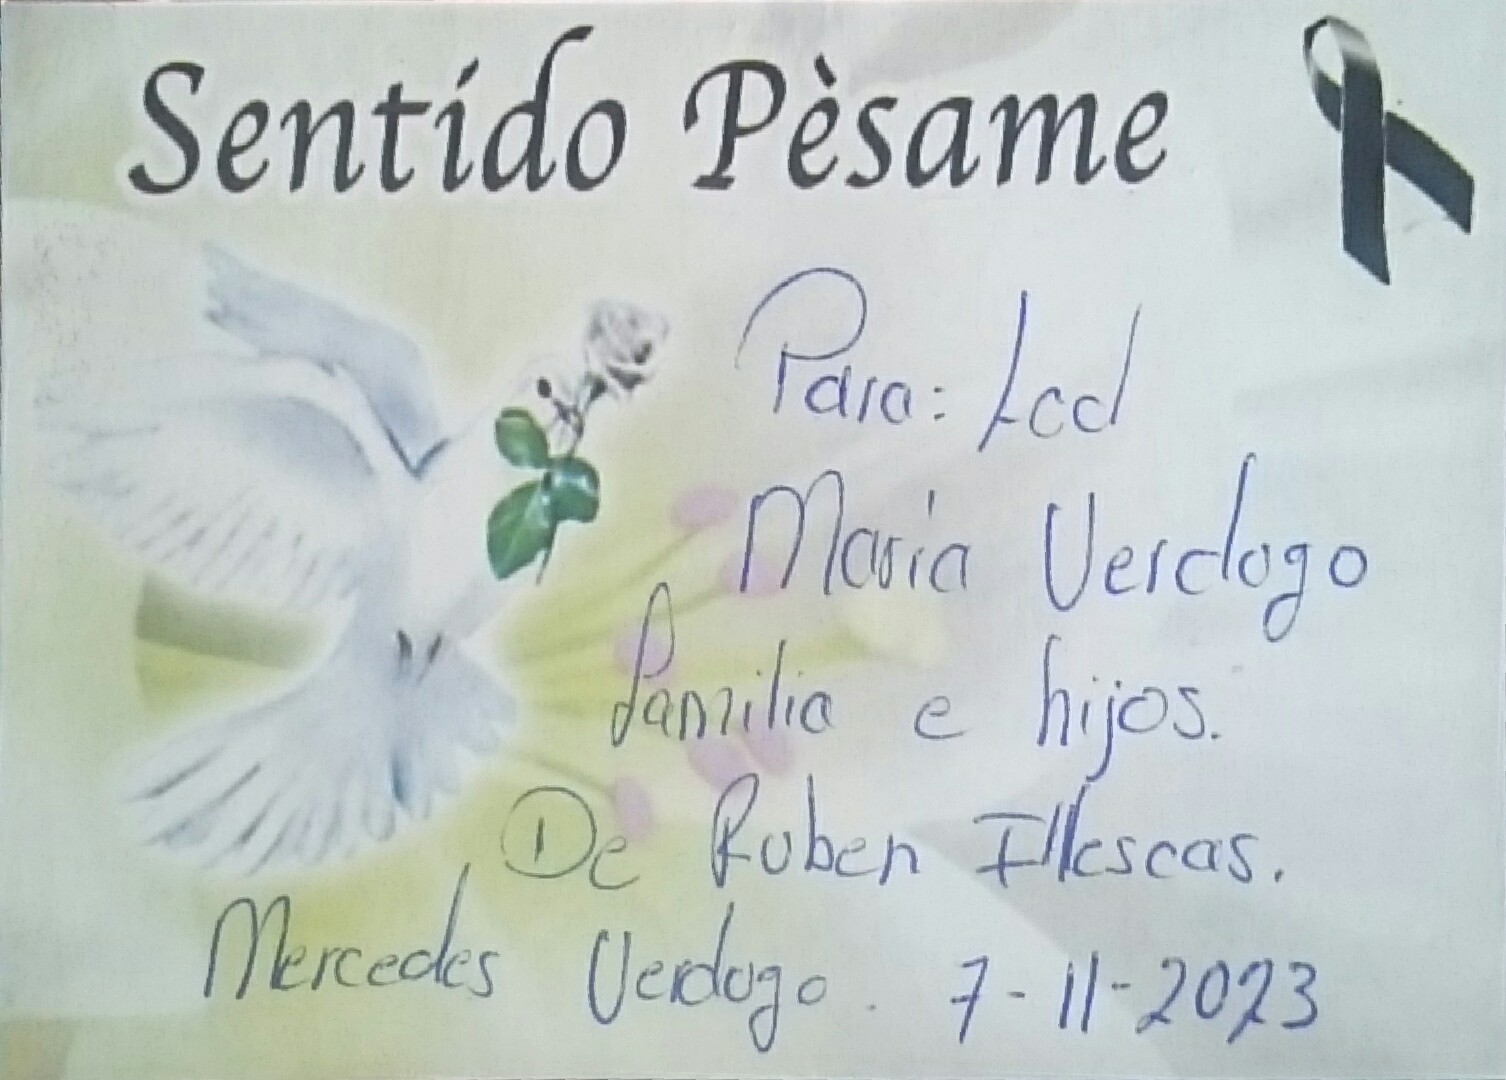 Sentido Pèsame
Para: Lcd
Maria Verdogo
familia e hijos.
De Ruben Illescas.
Mercedes Verdugo. 7-11-2023